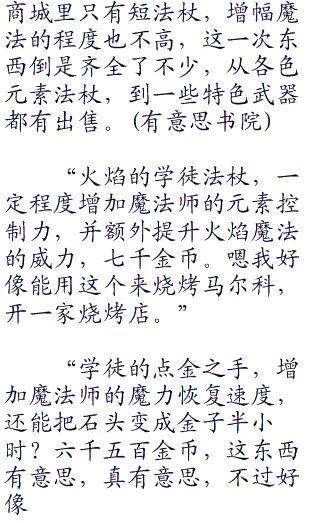 商城里只有短法杖，增幅魔
法的程度也不高，这一次东
西倒是齐全了不少，从各色
元素法杖，到一些特色武器
都有出售。(有意思书院)
“火焰的学徒法杖，一
定程度增加魔法师的元素控
制力，并额外提升火焰魔法
的威力，七千金币。嗯我好
像能用这个来烧烤马尔科，
开一家烧烤店。”
“学徒的点金之手，增
加魔法师的魔力恢复速度，
还能把石头变成金子半小
时？六千五百金币，这东西
有意思，真有意思，不过好
像